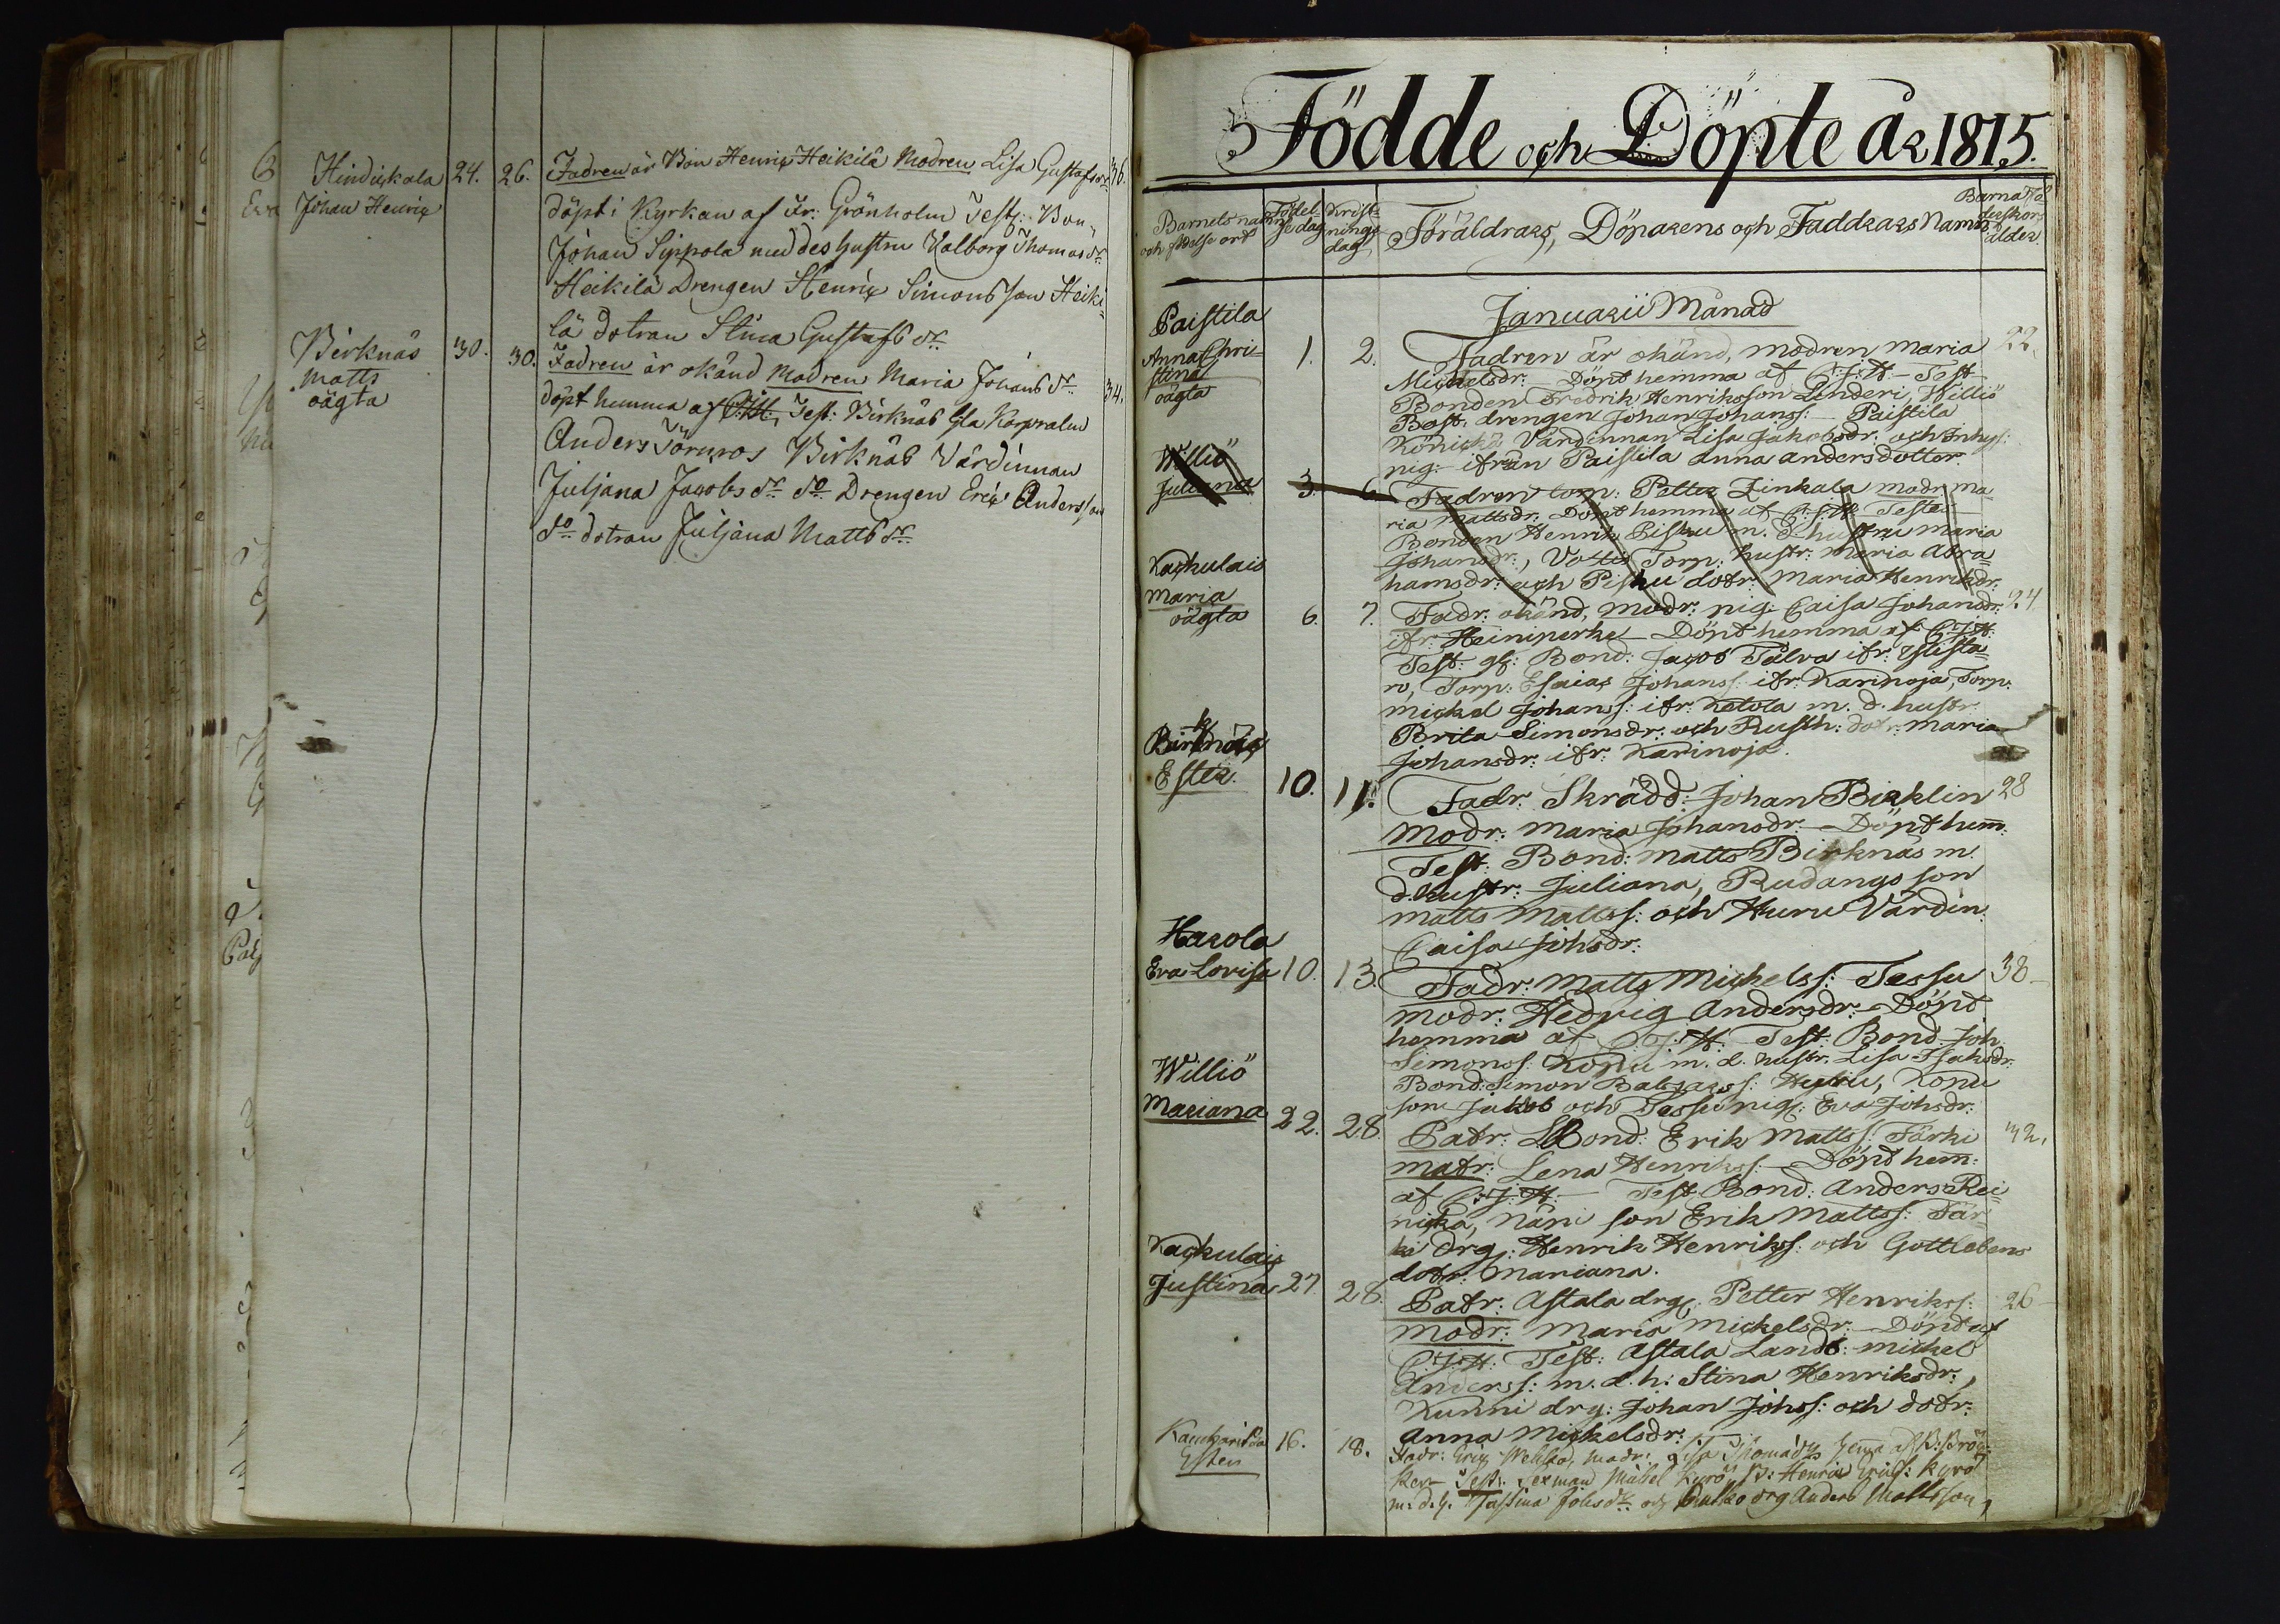 Hindickala 24. 26. Fadren är Bon Henric Heikilä Modren Lisa Gustafs dr 36.
Johan Henric döpt i Kyrkan af Hr: Grönholm Test: Bon
Johan Sippola med des hustru Valborg Thomas dr
Heikilä Drengen Henric Simonsson Heiki-
lä dotran Stina Gustafs dr
Birknäs 30. 30. Fadren är okänd Modren Maria Johans dr 34.
Matts döpt hemma af Test: Birknäs Gla Korpralen
oägta Anders Birknäs Värdinnan
Juljana Jacobs dr do Drengen Eric Andersson
do dotran Juljana Matts dr
Födde och Döpte år 1815.
Barnets namn och födelse ort
Födelsedag
Kristningsdag
Föräldrars, Döparens och Faddrars Namn
ålder
Januarii Månad
Paistila
Anna Chri-
stina
oägta
1. 2. Fadren är okänd, modren Maria 22.
Michelsdr: Döpt hemma af C:J:H- Test
Bonden Fredrik Henriksson Linderi, Williö
Bost. drengen Johan Johanss: Paistila
Värdinnan Lisa Jakobsdr: och Inhys:
pig: ifrån Paistila Anna Andersdotter.
Williö
Juliana
3. 6. Fadren torp: Petter Zinkala modr: ma-
ria Mattsdr: Döpt hemma af C:J:H: Teste
Bonden Henrik Pishu m. d: hustru Maria
Johansdr:, Torp: hustr: Maria Abra-
hamsdr: och Pishu dotr: Maria Henriksdr:
Kackulais
Maria
oägta
6. 7. Fadr: okänd, modr: pig: Caisa Johansdr: 24
ifr: Heiniperke- Döpt hemma af C:J:H:
Test: gl: Bond: Jacob Tälva ifr:
Torp: Esaias Johanss: ifr: Karinoja, Torp:
Mickel Johanss: ifr: Ketola m. d. hustr.
Brita Simonsdr: och Rusth: dotr: Maria
Johansdr: ifr: Karinoja.
Birknäs
Ester.
10. 11. Fadr: Skrädd: Johan Birklin 28
Modr: Maria Johansdr: - Döpt hem:
Test: Bond: Matts Birknäs m.
d. hustr: Juliana, Rudangs son
Matts Mattss: och Huru Värdin:
Caisa Johsdr:
Harola
Eva Lovisa 10. 13. Fadr: Matts Michelss: Tessu 38
Modr: Hedvig Andersdr: - Döpt
hemma af C:J:H. Test: Bond. Joh
Simonss: Konu m. d. hustr. Lisa Isaksdr:
Bond: Simon Baltzarss: Konu
son Jakob och Tessu pig: Eva Johsdr:
Williö
Mariana 22. 28. Patr: LBond: Erik Mattss: Järki 32.
matr: Lena Henrikss: - Döpt hem:
af C:J:H: - Test: Bond: Anders Rei-
nicka, Näpi son Erik Mattss: Jär-
ki drg: Henrik Henrikss: och Gottlebens
dotr: Mariana.
Kackulais
Justina 27 28. Patr: Astala drg: Petter Henrikss: 26
Modr: Maria Mickelsdr: - Döpt af
C:J:H: Test: Astala Landb: Mickel
Anderss: m. d. h: Stina Henriksdr:,
Kunni drg: Johan Johss: och dotr:
Anna Mickelsdr:
Esten 16. 18. Fadr: Eric Modr: Lisa Thomasdr hema af
Test: Sexman Michel Kyrö, B: Henric Erics: Kyrö
m: d. h. Johsdr och drg Anders Mattsson,